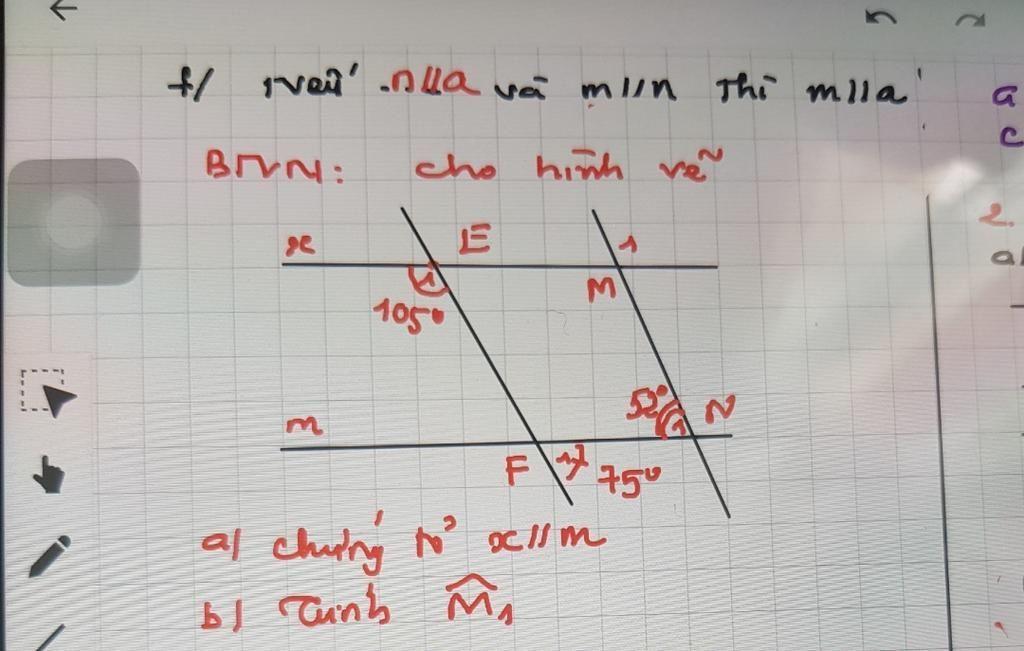 f/ Nếu n//a và m//n thì m//a
a
c
BTVN: cho hình vẽ
2.
a
x E 1
M
1
105°
m 52° N
1
F 1 75°
a) chứng tỏ x//m
b) Tính M̂₁